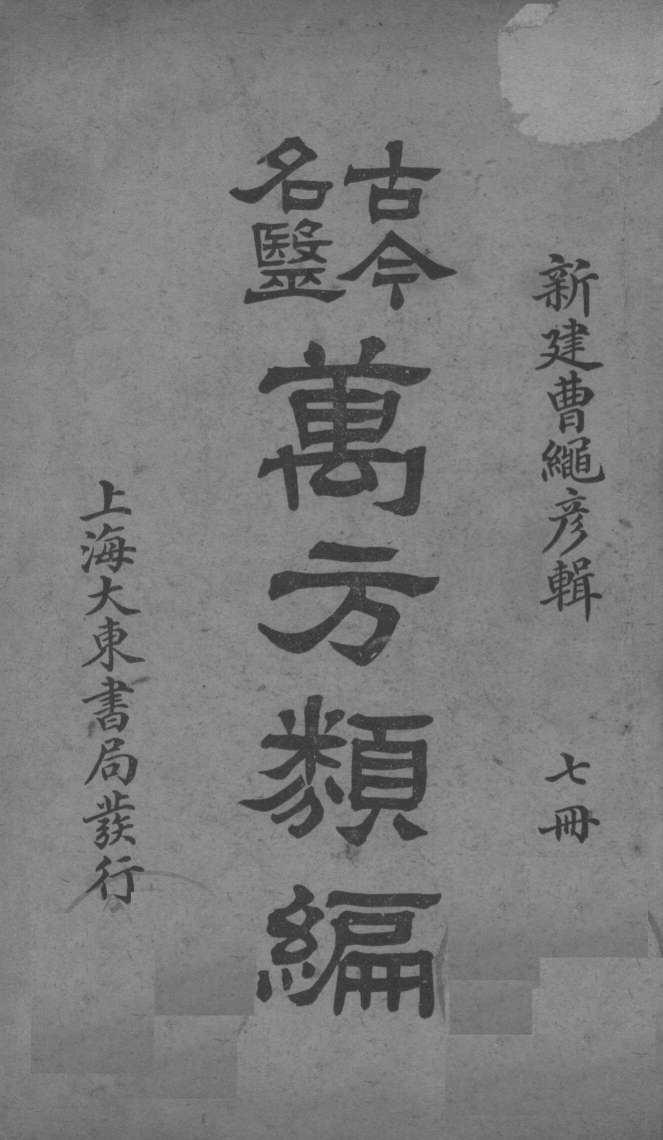 新建曹繩彥輯
七冊
古今
名醫
萬方類編
上海大東書局發行